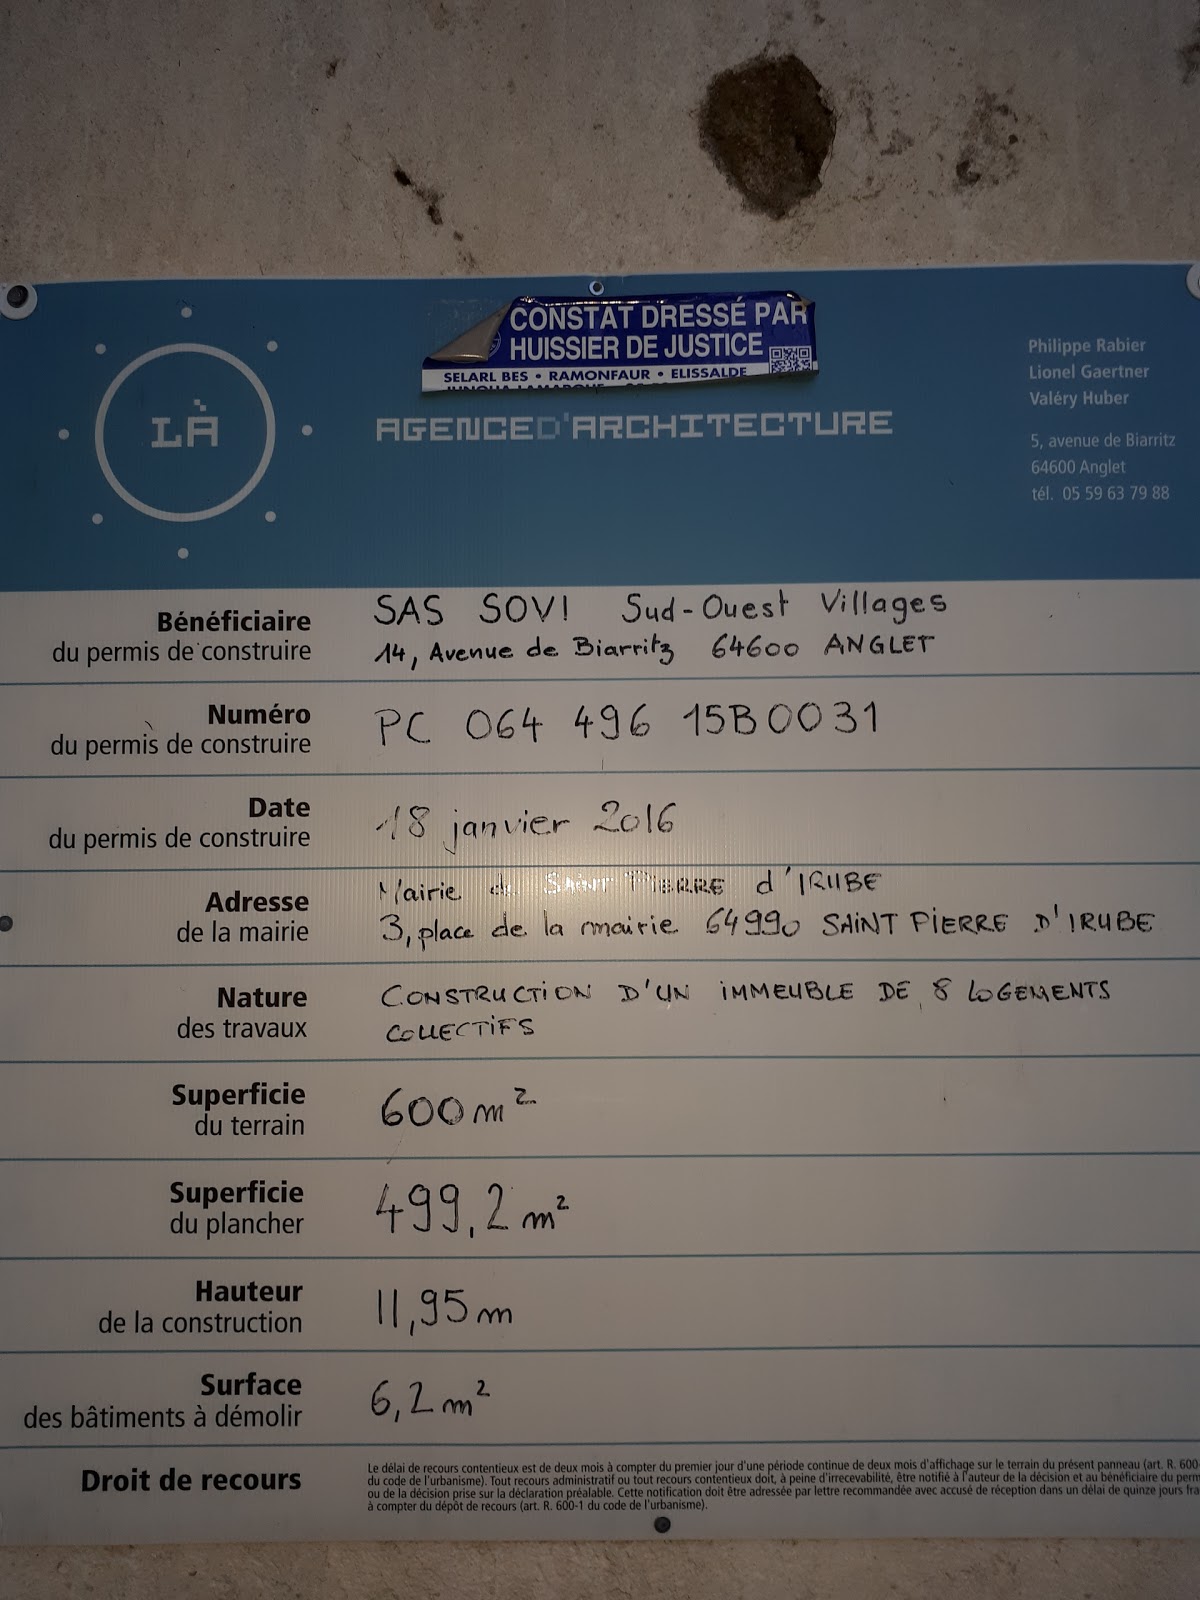 CONSTAT DRESSÉ PAR
HUISSIER DE JUSTICE
SELARL BES • RAMONFAUR • ELISSALDE
LÀ
AGENCED'ARCHITECTURE
Philippe Rabier
Lionel Gaertner
Valéry Huber
5, avenue de Biarritz
64600 Anglet
tél. 05 59 63 79 88
Bénéficiaire
du permis de construire
SAS SOVI Sud-Ouest Villages
14, Avenue de Biarritz 64600 ANGLET
Numéro
du permis de construire
PC 064 496 15B0031
Date
du permis de construire
18 janvier 2016
Adresse
de la mairie
Mairie de SAINT PIERRE d'IRUBE
3, place de la mairie 64990 SAINT PIERRE D'IRUBE
Nature
des travaux
CONSTRUCTION D'UN IMMEUBLE DE 8 LOGEMENTS
COLLECTIFS
Superficie
du terrain
600 m²
Superficie
du plancher
499,2 m²
Hauteur
de la construction
11,95 m
Surface
des bâtiments à démolir
6,2 m²
Droit de recours
Le délai de recours contentieux est de deux mois à compter du premier jour d'une période continue de deux mois d'affichage sur le terrain du présent panneau (art. R. 600-
du code de l'urbanisme). Tout recours administratif ou tout recours contentieux doit, à peine d'irrecevabilité, être notifié à l'auteur de la décision et au bénéficiaire du perm
ou de la décision prise sur la déclaration préalable. Cette notification doit être adressée par lettre recommandée avec accusé de réception dans un délai de quinze jours fra
à compter du dépôt de recours (art. R. 600-1 du code de l'urbanisme).